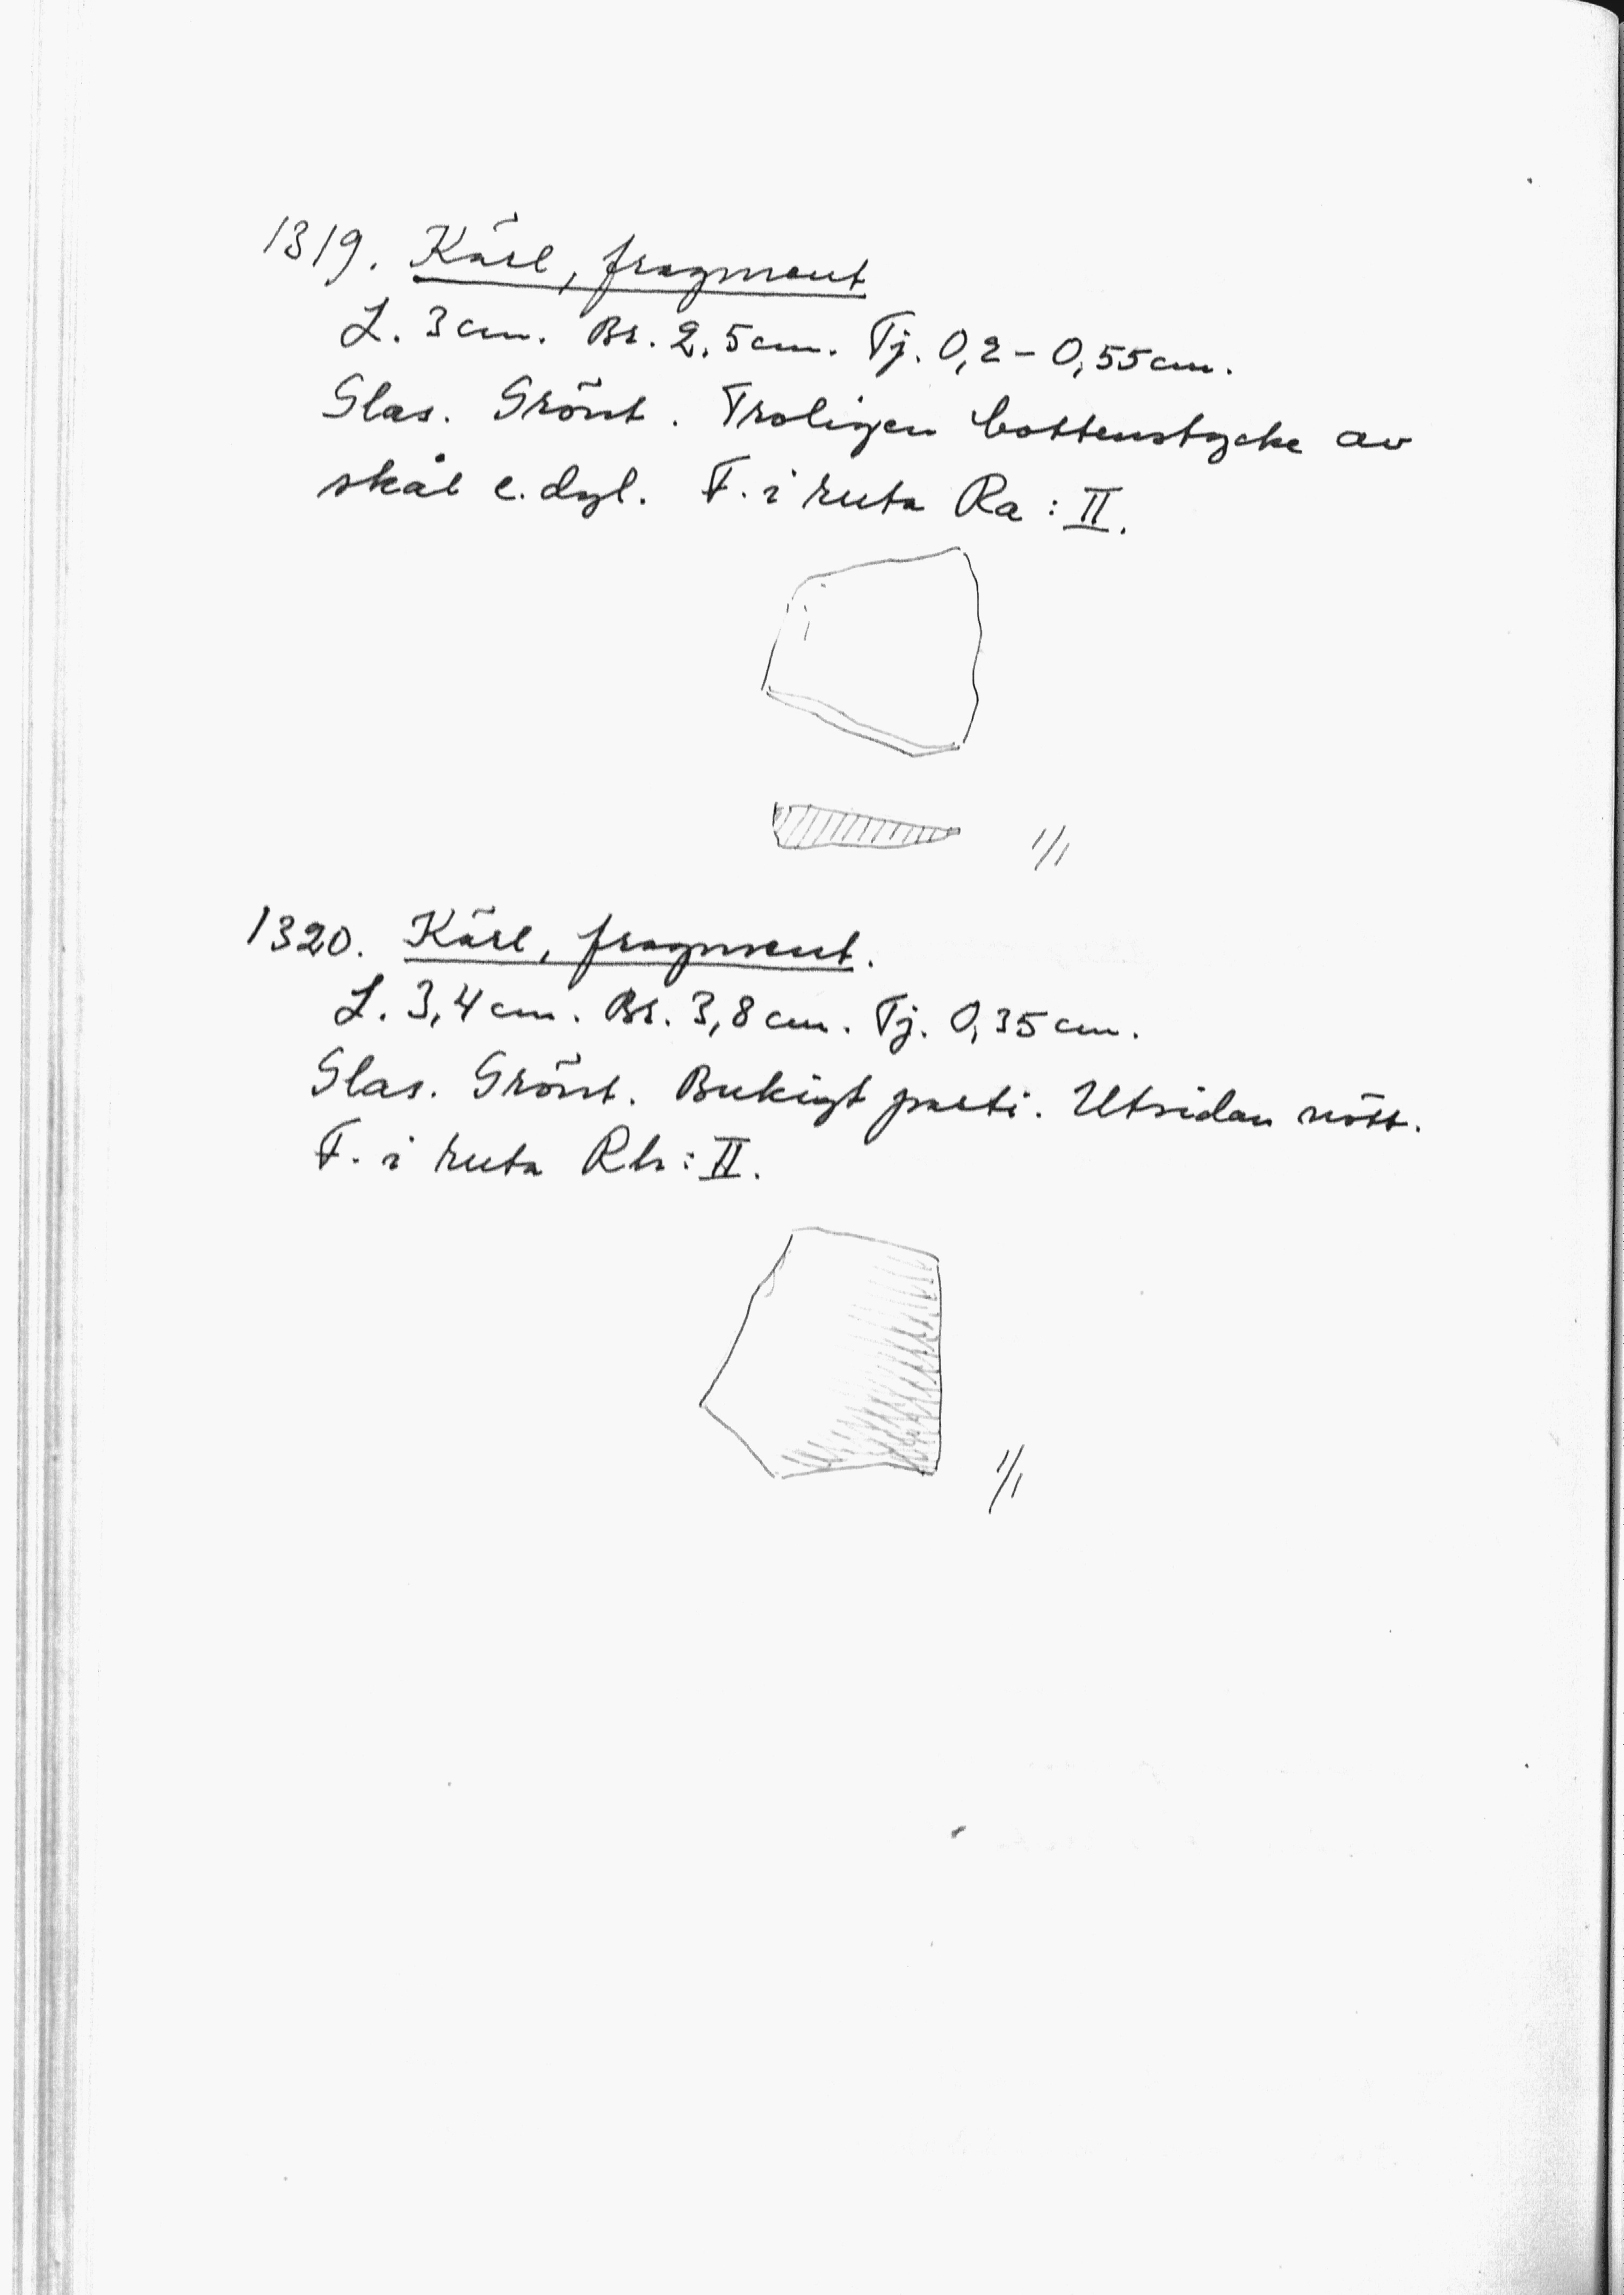 1319. Kärl, fragment
L. 3 cm. Br. 2,5 cm. Tj. 0,2 – 0,55 cm.
Glas. Grönt. Troligen bottenstycke av
skål e. dyl. F. i ruta Ra : II.
1/1
1320. Kärl, fragment.
L. 3,4 cm. Br. 3,8 cm. Tj. 0,35 cm.
Glas. Grönt. Bukigt parti. Utsidan nött.
F. i ruta Rh : II.
1/1